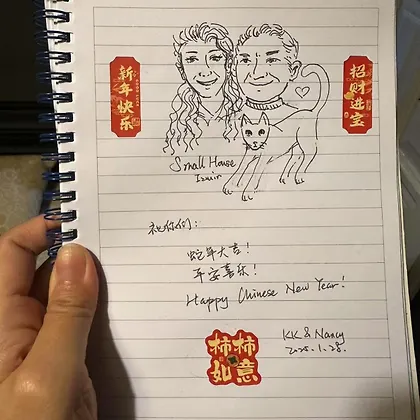 新年快乐
招财进宝
Small House
祝你们:
蛇年大吉!
平安喜乐!
Happy Chinese New Year!
柿柿如意
KK & Nancy
2025.1.28.